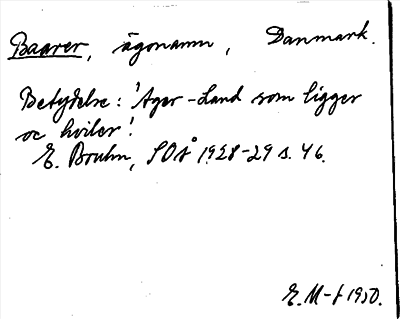 Baarer, ägonamn, Danmark.
Betydelse: 'Ager-Land som ligger
oc hviler!
E. Bruhn, SOÅ 1928-29 s. 46.
E. M-t 1950.